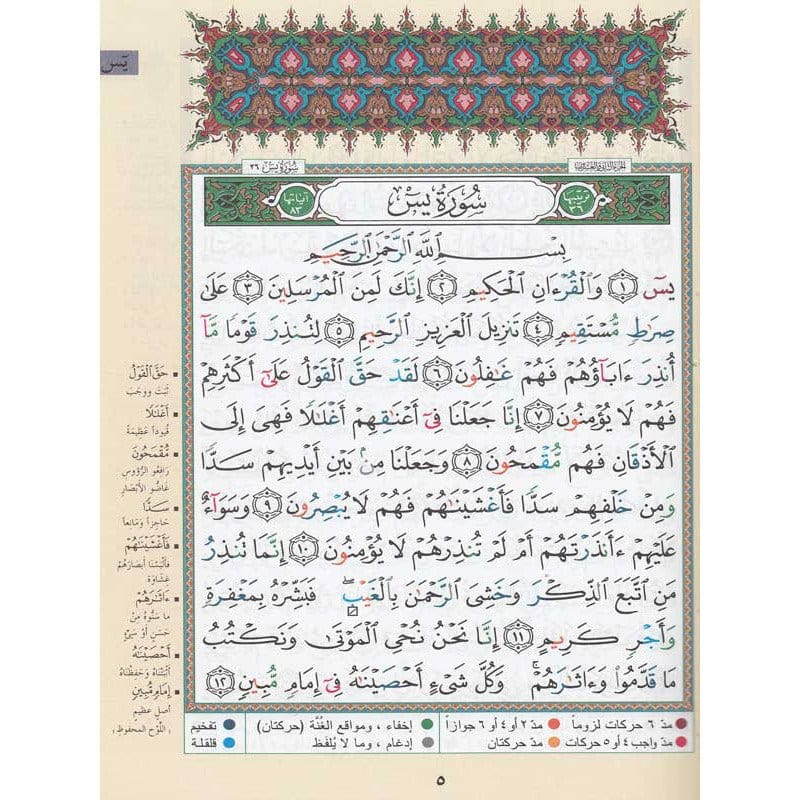 يسٓ
الجزء الثاني والعشرون
سُورَةُ يسٓ ٣٦
ترتيبها ٣٦
سُورَةُ يسٓ
آياتها ٨٣
بِسْمِ ٱللَّهِ ٱلرَّحْمَٰنِ ٱلرَّحِيمِ
يسٓ ١ وَٱلْقُرْءَانِ ٱلْحَكِيمِ ٢ إِنَّكَ لَمِنَ ٱلْمُرْسَلِينَ ٣ عَلَىٰ
صِرَٰطٍ مُّسْتَقِيمٍ ٤ تَنزِيلَ ٱلْعَزِيزِ ٱلرَّحِيمِ ٥ لِتُنذِرَ قَوْمًا مَّآ
أُنذِرَ ءَابَآؤُهُمْ فَهُمْ غَٰفِلُونَ ٦ لَقَدْ حَقَّ ٱلْقَوْلُ عَلَىٰٓ أَكْثَرِهِمْ
فَهُمْ لَا يُؤْمِنُونَ ٧ إِنَّا جَعَلْنَا فِىٓ أَعْنَٰقِهِمْ أَغْلَٰلًا فَهِىَ إِلَى
ٱلْأَذْقَانِ فَهُم مُّقْمَحُونَ ٨ وَجَعَلْنَا مِنۢ بَيْنِ أَيْدِيهِمْ سَدًّا
وَمِنْ خَلْفِهِمْ سَدًّا فَأَغْشَيْنَٰهُمْ فَهُمْ لَا يُبْصِرُونَ ٩ وَسَوَآءٌ
عَلَيْهِمْ ءَأَنذَرْتَهُمْ أَمْ لَمْ تُنذِرْهُمْ لَا يُؤْمِنُونَ ١٠ إِنَّمَا تُنذِرُ
مَنِ ٱتَّبَعَ ٱلذِّكْرَ وَخَشِىَ ٱلرَّحْمَٰنَ بِٱلْغَيْبِ ۖ فَبَشِّرْهُ بِمَغْفِرَةٍ
وَأَجْرٍ كَرِيمٍ ١١ إِنَّا نَحْنُ نُحْىِ ٱلْمَوْتَىٰ وَنَكْتُبُ
مَا قَدَّمُوا۟ وَءَاثَٰرَهُمْ ۚ وَكُلَّ شَىْءٍ أَحْصَيْنَٰهُ فِىٓ إِمَامٍ مُّبِينٍ ١٢
▪ حَقَّ ٱلْقَوْلُ
ثبَتَ ووجَبَ
▪ أَغْلَٰلًا
قُيوداً عَظيمَةً
▪ مُّقْمَحُونَ
رافِعُو الرُّؤوسِ
غَاضُّو الأبْصَارِ
▪ سَدًّا
حَاجِزاً ومَانِعاً
▪ فَأَغْشَيْنَٰهُمْ
فألْبَسْنَا أبصَارَهُمْ
غِشَاوَة
▪ ءَاثَٰرَهُمْ
ما سَنُّوهُ مِنْ
حَسَنٍ أوْ سَيِّئٍ
▪ أَحْصَيْنَٰهُ
أثْبَتْنَاهُ وَحَفِظْنَاهُ
▪ إِمَامٍ مُّبِينٍ
أصلٍ عظيمٍ
( اللَّوْحِ المحفوظِ )
مدّ ٦ حركات لزوماً
مدّ ٢ أو ٤ أو ٦ جوازاً
إخفاء ، ومواقع الغُنَّة (حركتان)
تفخيم
مدّ واجب ٤ أو ٥ حركات
مدّ حركتان
إدغام ، وما لا يُلفَظ
قلقلة
٥